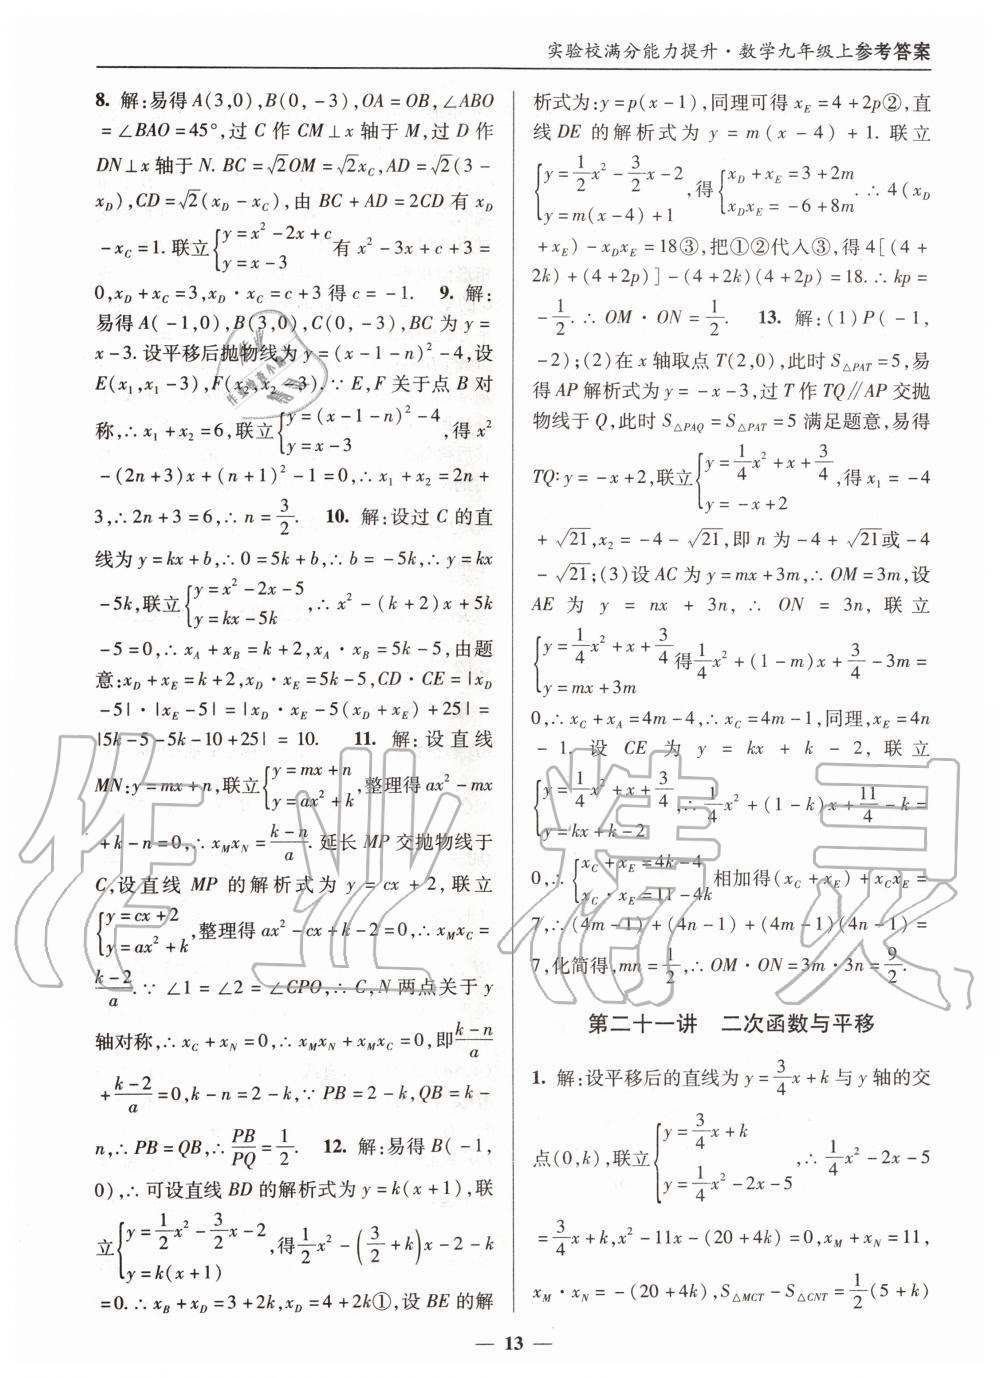 实验校满分能力提升·数学九年级上参考答案
8. 解:易得A(3,0),B(0,-3),OA=OB,∠ABO
=∠BAO=45°,过C作CM⊥x轴于M,过D作
DN⊥x轴于N. BC=√2OM=√2x_C,AD=√2(3-
x_D),CD=√2(x_D-x_C),由BC+AD=2CD有x_D
-x_C=1.联立{y=x²-2x+c y=x-3 有x²-3x+c+3=
0,x_D+x_C=3,x_D·x_C=c+3得c=-1. 9. 解:
易得A(-1,0),B(3,0),C(0,-3),BC为y=
x-3.设平移后抛物线为y=(x-1-n)²-4,设
E(x₁,x₁-3),F(x₂,x₂-3).∵E,F关于点B对
称,∴x₁+x₂=6,联立{y=(x-1-n)²-4 y=x-3 ,得x²
-(2n+3)x+(n+1)²-1=0,∴x₁+x₂=2n+
3,∴2n+3=6,∴n=3/2. 10. 解:设过C的直
线为y=kx+b,∴0=5k+b,∴b=-5k,∴y=kx
-5k,联立{y=x²-2x-5 y=kx-5k ,∴x²-(k+2)x+5k
-5=0,∴x_A+x_B=k+2,x_A·x_B=5k-5,由题
意:x_D+x_E=k+2,x_D·x_E=5k-5,CD·CE=|x_D
-5|·|x_E-5|=|x_D·x_E-5(x_D+x_E)+25|=
|5k-5-5k-10+25|=10. 11. 解:设直线
MN:y=mx+n,联立{y=mx+n y=ax²+k ,整理得ax²-mx
+k-n=0,∴x_Mx_N=(k-n)/a. 延长MP交抛物线于
C,设直线MP的解析式为y=cx+2,联立
{y=cx+2 y=ax²+k ,整理得ax²-cx+k-2=0,∴x_Mx_C=
(k-2)/a.∵∠1=∠2=∠CPO,∴C,N两点关于y
轴对称,∴x_C+x_N=0,∴x_Mx_N+x_Mx_C=0,即(k-n)/a
+(k-2)/a=0,k-n=2-k,∵PB=2-k,QB=k-
n,∴PB=QB,∴PB/PQ=1/2. 12. 解:易得B(-1,
0),∴可设直线BD的解析式为y=k(x+1),联
立{y=1/2x²-3/2x-2 y=k(x+1) ,得1/2x²-(3/2+k)x-2-k
=0.∴x_B+x_D=3+2k,x_D=4+2k①,设BE的解
析式为:y=p(x-1),同理可得x_E=4+2p②,直
线DE的解析式为y=m(x-4)+1.联立
{y=1/2x²-3/2x-2 y=m(x-4)+1 ,得{x_D+x_E=3+2m x_Dx_E=-6+8m .∴4(x_D
+x_E)-x_Dx_E=18③,把①②代入③,得4[(4+
2k)+(4+2p)]-(4+2k)(4+2p)=18.∴kp=
-1/2.∴OM·ON=1/2. 13. 解:(1)P(-1,
-2);(2)在x轴取点T(2,0),此时S△PAT=5,易
得AP解析式为y=-x-3,过T作TQ∥AP交抛
物线于Q,此时S△PAQ=S△PAT=5满足题意,易得
TQ:y=-x+2,联立{y=1/4x²+x+3/4 y=-x+2 ,得x₁=-4
+√21,x₂=-4-√21,即n为-4+√21或-4
-√21;(3)设AC为y=mx+3m,∴OM=3m,设
AE为y=nx+3n,∴ON=3n,联立
{y=1/4x²+x+3/4 y=mx+3m 得1/4x²+(1-m)x+3/4-3m=
0,∴x_C+x_A=4m-4,∴x_C=4m-1,同理,x_E=4n
-1.设CE为y=kx+k-2,联立
{y=1/4x²+x+3/4 y=kx+k-2 ,∴1/4x²+(1-k)x+11/4-k=
0,∴{x_C+x_E=4k-4 x_C·x_E=11-4k 相加得(x_C+x_E)+x_Cx_E=
7,∴(4m-1)+(4n-1)+(4m-1)(4n-1)=
7,化简得,mn=1/2,∴OM·ON=3m·3n=9/2.
第二十一讲 二次函数与平移
1. 解:设平移后的直线为y=3/4x+k与y轴的交
点(0,k),联立{y=3/4x+k y=1/4x²-2x-5 ,∴1/4x²-2x-5
=3/4x+k,x²-11x-(20+4k)=0,x_M+x_N=11,
x_M·x_N=-(20+4k),S△MCT-S△CNT=1/2(5+k)
— 13 —
作业精灵